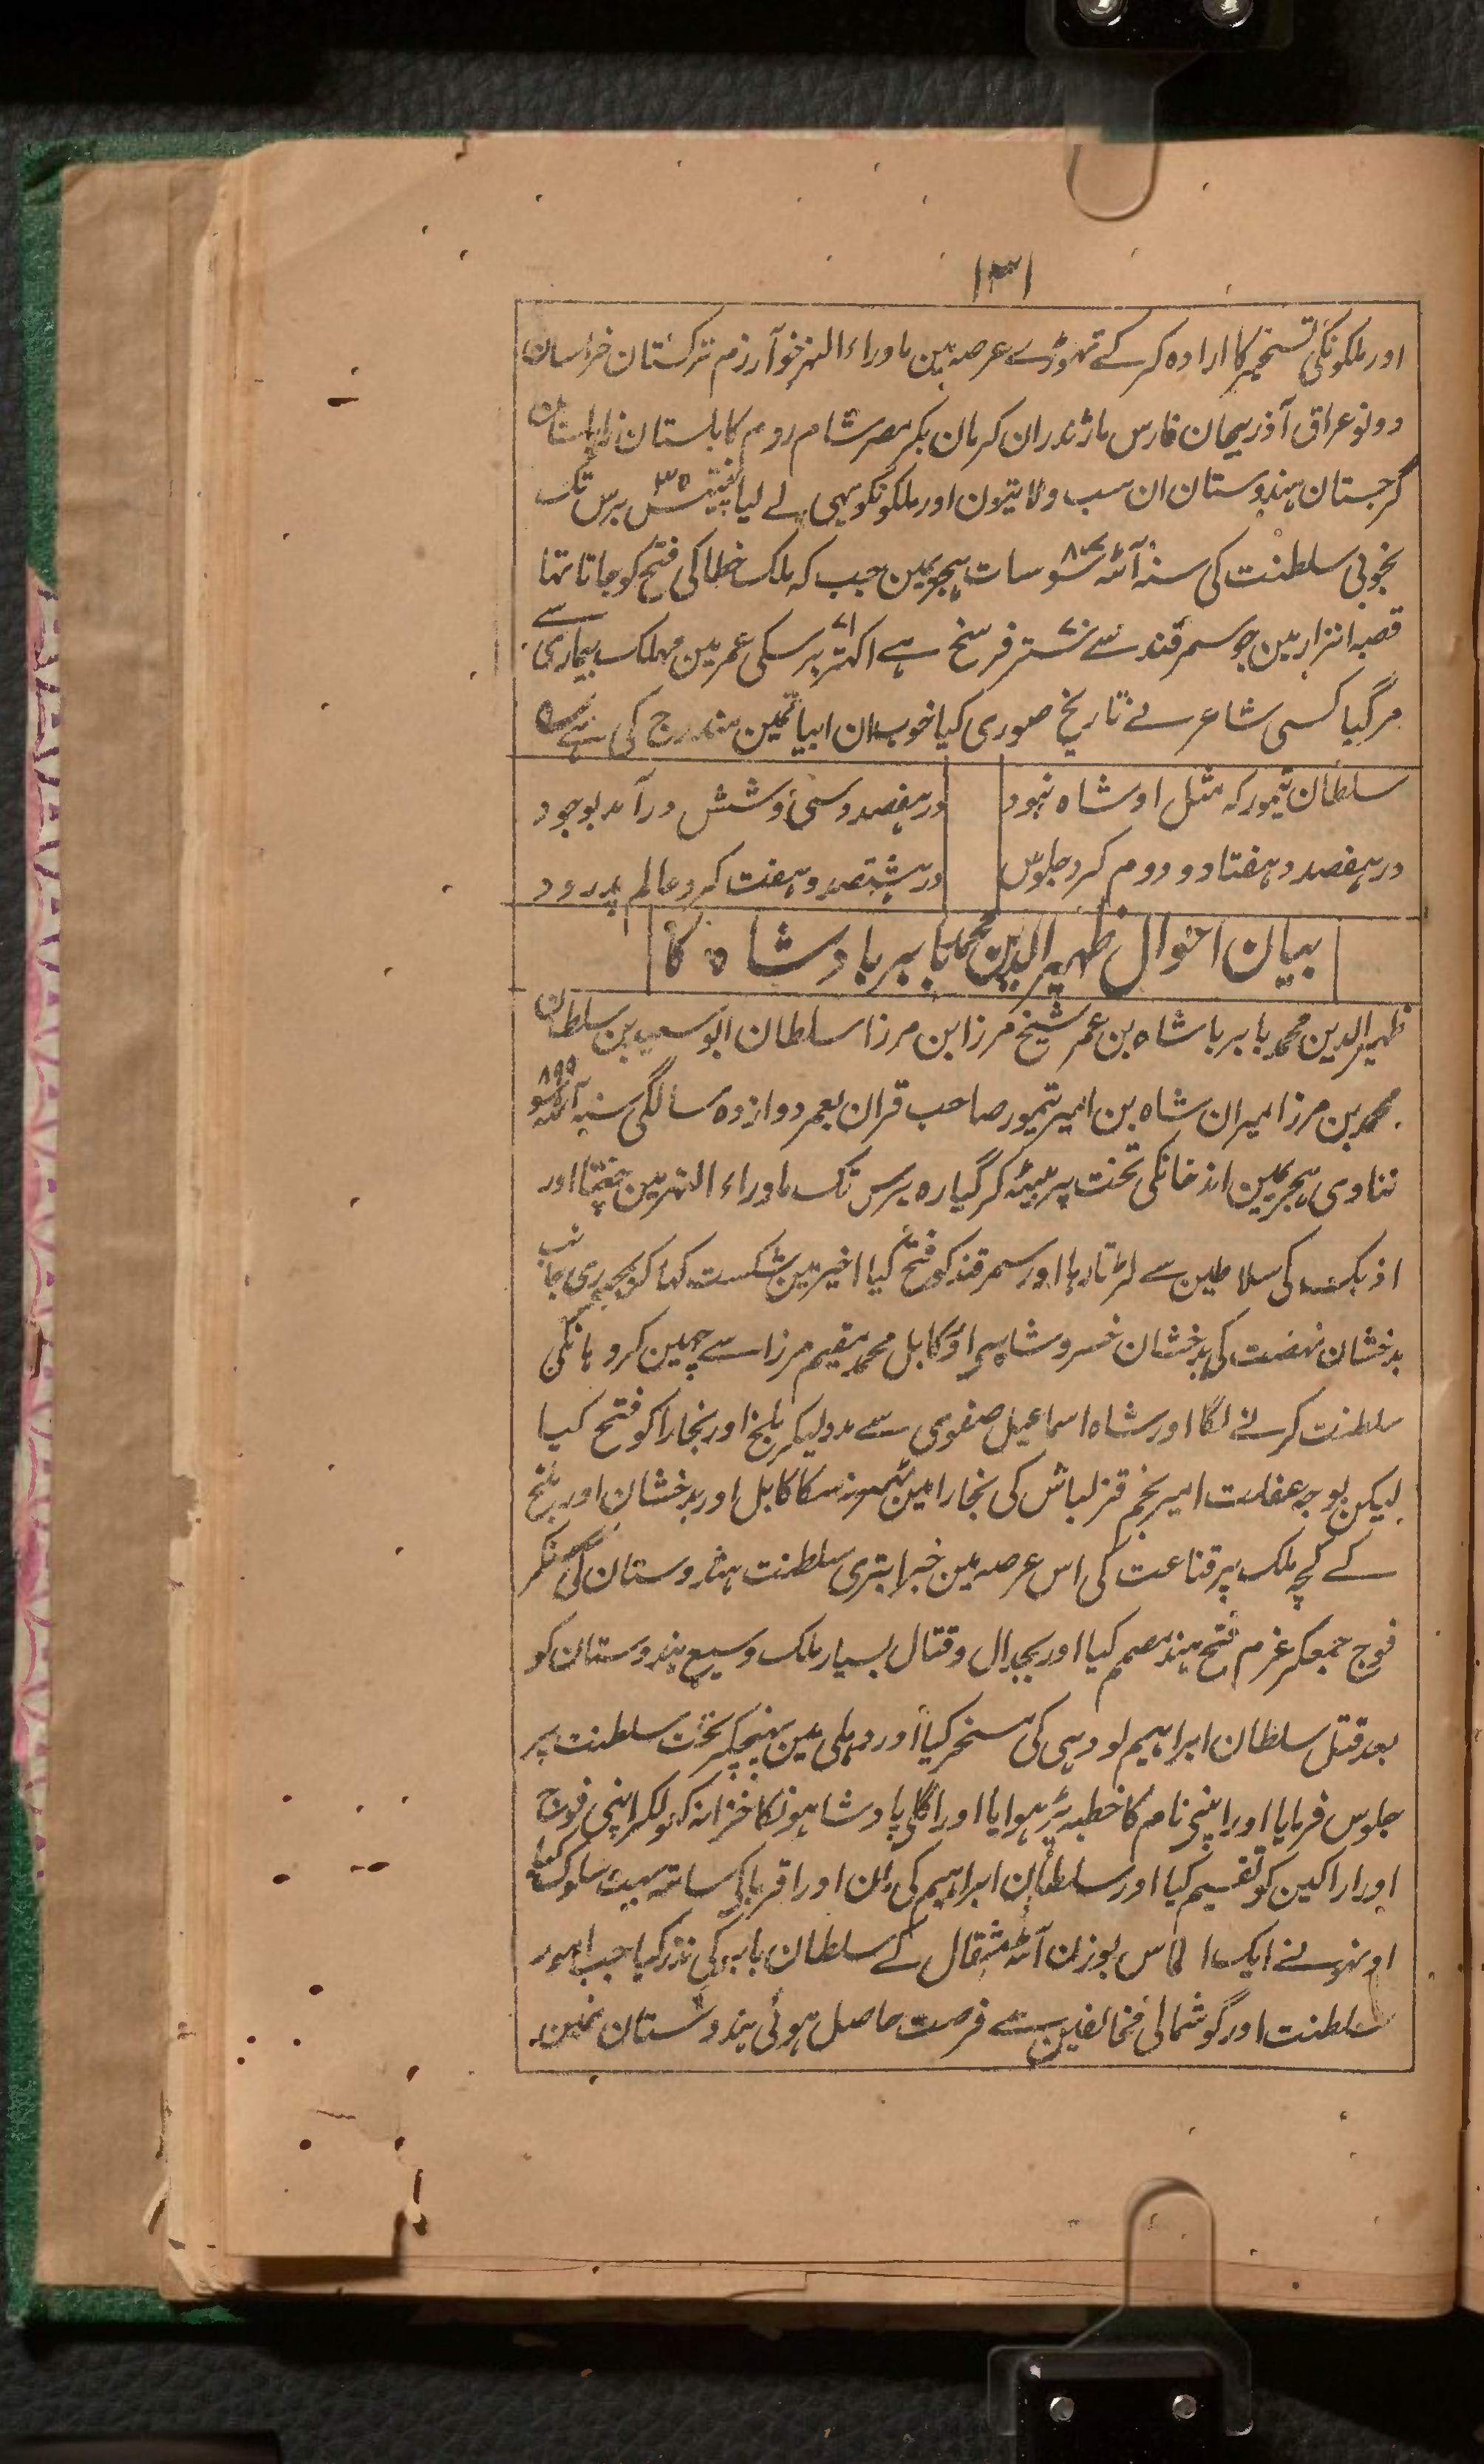 ۱۳۱
اور ملکونکی تسخیر کا ارادہ کر کے تہوڑے عرصہ مین ماوراء النہر خوآرزم ترکستان خراسان
دونو عراق آذربیجان فارس ماژندران کرمان بکر مصر شام روم کابلستان زابلستان
گرجستان ہندوستان ان سب ولایتون اور ملکونکو بھی لے لیا ۳۵ برس تک
بخوبی سلطنت کی سنہ آٹھ سو سات ہجریمین جب کہ ملک خطا کی فتح کو جاتا تہا
قصبہ انزار مین جو سمرقند سے فرسخ ہے اکہتر ۷۱ برسکی عمر مین مہلک بیماری سے
مر گیا کسی شاعر نے تاریخ صوری کیا خوب ان ابیاتمین مندرج کی ہے
سلطان تیمور کہ مثل او شاہ نبود در ہفصد و سی و شش درآمد بوجود
در ہفصد و ہفتاد و دوم کرد جلوس در ہشتصد و ہفت کرد عالم پدرود
بیان احوال ظہیر الدین محمد بابر بادشاہ کا
ظہیر الدین محمد بابر باشاہ بن عمر شیخ مرزا بن مرزا سلطان ابو سعید بن سلطان
محمد بن مرزا میران شاہ بن امیر تیمور صاحب قران بعمر دوازدہ سالگی سنہ آٹھ سو ۸۹۹
ننانوی ہجریمین اندخانکی تخت پر بیٹہ کر گیارہ برس تک ماوراء النہر مین چغتا اور
اذبک کی سلاطین سے لڑتا رہا اور سمرقند کو فتح کیا اخیر مین شکست کہا کر جانب
بدخشان نہضت کی بدخشان خسرو شاہسی اور کابل محمد مقیم مرزا سے چہین کر وہانکی
سلطنت کرنے لگا اور شاہ اسماعیل صفوی سے مدد لیکر بلخ اور بخارا کو فتح کیا
لیکن بوجہ غفلت امیر نجم قزلباش کی بخارا مین ٹہر نہ سکا کابل اور بدخشان اور بلخ
کے کچہ ملک پر قناعت کی اس عرصہ مین خبر ابتری سلطنت ہندوستان کی سنکر
فوج جمعکر عزم فتح ہند مصمم کیا اور بجدال و قتال بسیار ملک وسیع ہندوستان کو
بعد قتل سلطان ابراہیم لودہی کی مسخر کیا اور دہلی مین پہنچکر تخت سلطنت پر
جلوس فرمایا اور اپنی نام کا خطبہ پڑہوایا اور اگلی پادشاہونکا خزانہ کہولکر اپنی فوج
اور اراکین کو تقسیم کیا اور سلطان ابراہیم کی مان اور اقربا کی ساتہ بہت سلوک کیا
اونہونے ایک الماس بوزن آٹھ مثقال کے سلطان بابر کی نذر کیا جب امور
سلطنت اور گوشمالی مخالفین سے فرصت حاصل ہوئی ہندوستان مین